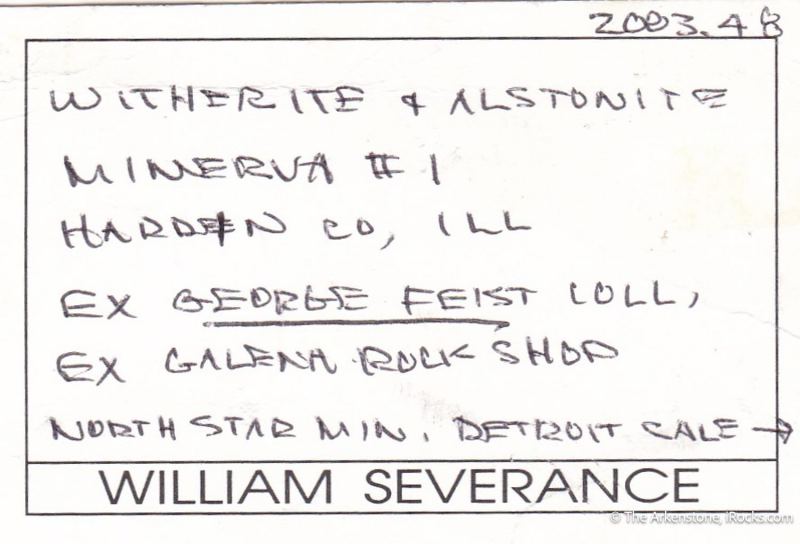 2003.48
WITHERITE & ALSTONITE
MINERVA #1
HARDIN CO, ILL
EX GEORGE FEIST COLL,
EX GALENA ROCK SHOP
NORTH STAR MIN. DETROIT SALE →
WILLIAM SEVERANCE
© The Arkenstone, iRocks.com